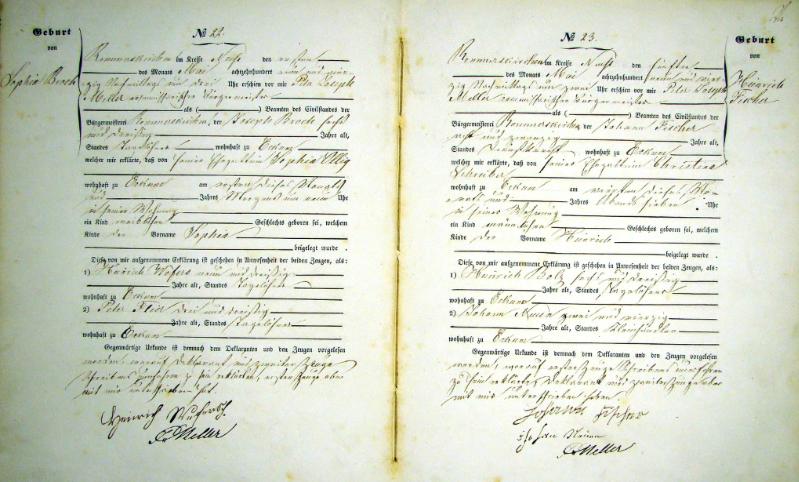 Geburt
von
Sophia Broch
№ 22.
Rommerskirchen im Kreise Neuß den ersten
des Monats Mai achtzehnhundert neun und vier
zig Nachmittags um drei Uhr erschien vor mir Peter Joseph
Meller commissarischer Bürgermeister
als ( ) Beamten des Civilstandes der
Bürgermeisterei Rommerskirchen, der Joseph Broch sechs
und dreißig Jahre alt,
Standes wohnhaft zu Eckum
welcher mir erklärte, daß von seiner Ehegattin Sophia
wohnhaft zu Eckum am ersten dieses Monats
und Jahres Morgens um neun Uhr
in seiner Wohnung
ein Kind weiblichen Geschlechts geboren sei, welchem
Kinde der Vorname Sophia
beigelegt wurde.
Diese von mir aufgenommene Erklärung ist geschehen in Anwesenheit der beiden Zeugen, als:
1) Heinrich neun und dreißig
Jahre alt, Standes Tagelöhner
wohnhaft zu Eckum
2) Peter drei und dreißig
Jahre alt, Standes Tagelöhner
wohnhaft zu Eckum
Gegenwärtige Urkunde ist demnach dem Deklaranten und den Zeugen vorgelesen
worden, worauf Deklarant und zweiter Zeuge
Schreibens unerfahren zu sein erklärten, erster Zeuge aber
mit mir unterschrieben hat.
Heinrich
P J Meller
Geburt
von
Heinrich
Fischer
№ 23.
Rommerskirchen im Kreise Neuß den fünften
des Monats Mai achtzehnhundert neun und vier
zig Nachmittags um zwei Uhr erschien vor mir Peter Joseph
Meller commissarischer Bürgermeister
als ( ) Beamten des Civilstandes der
Bürgermeisterei Rommerskirchen der Johann Fischer
und zwanzig Jahre alt,
Standes wohnhaft zu Eckum
welcher mir erklärte, daß von seiner Ehegattin Christina
Schreiber
wohnhaft zu Eckum am vierten dieses Mo-
nats und Jahres Abends sieben Uhr
in seiner Wohnung
ein Kind männlichen Geschlechts geboren sei, welchem
Kinde der Vorname Heinrich
beigelegt wurde.
Diese von mir aufgenommene Erklärung ist geschehen in Anwesenheit der beiden Zeugen, als:
1) Heinrich Bolz sechs und dreißig
Jahre alt, Standes Tagelöhner
wohnhaft zu Eckum
2) Johann zwei und vierzig
Jahre alt, Standes Kleinhändler
wohnhaft zu Eckum
Gegenwärtige Urkunde ist demnach dem Deklaranten und den Zeugen vorgelesen
worden, worauf erster Zeuge Schreibens unerfahren
zu sein erklärte, Deklarant und zweiter Zeuge aber
mit mir unterschrieben haben.
Johann Fischer
P J Meller